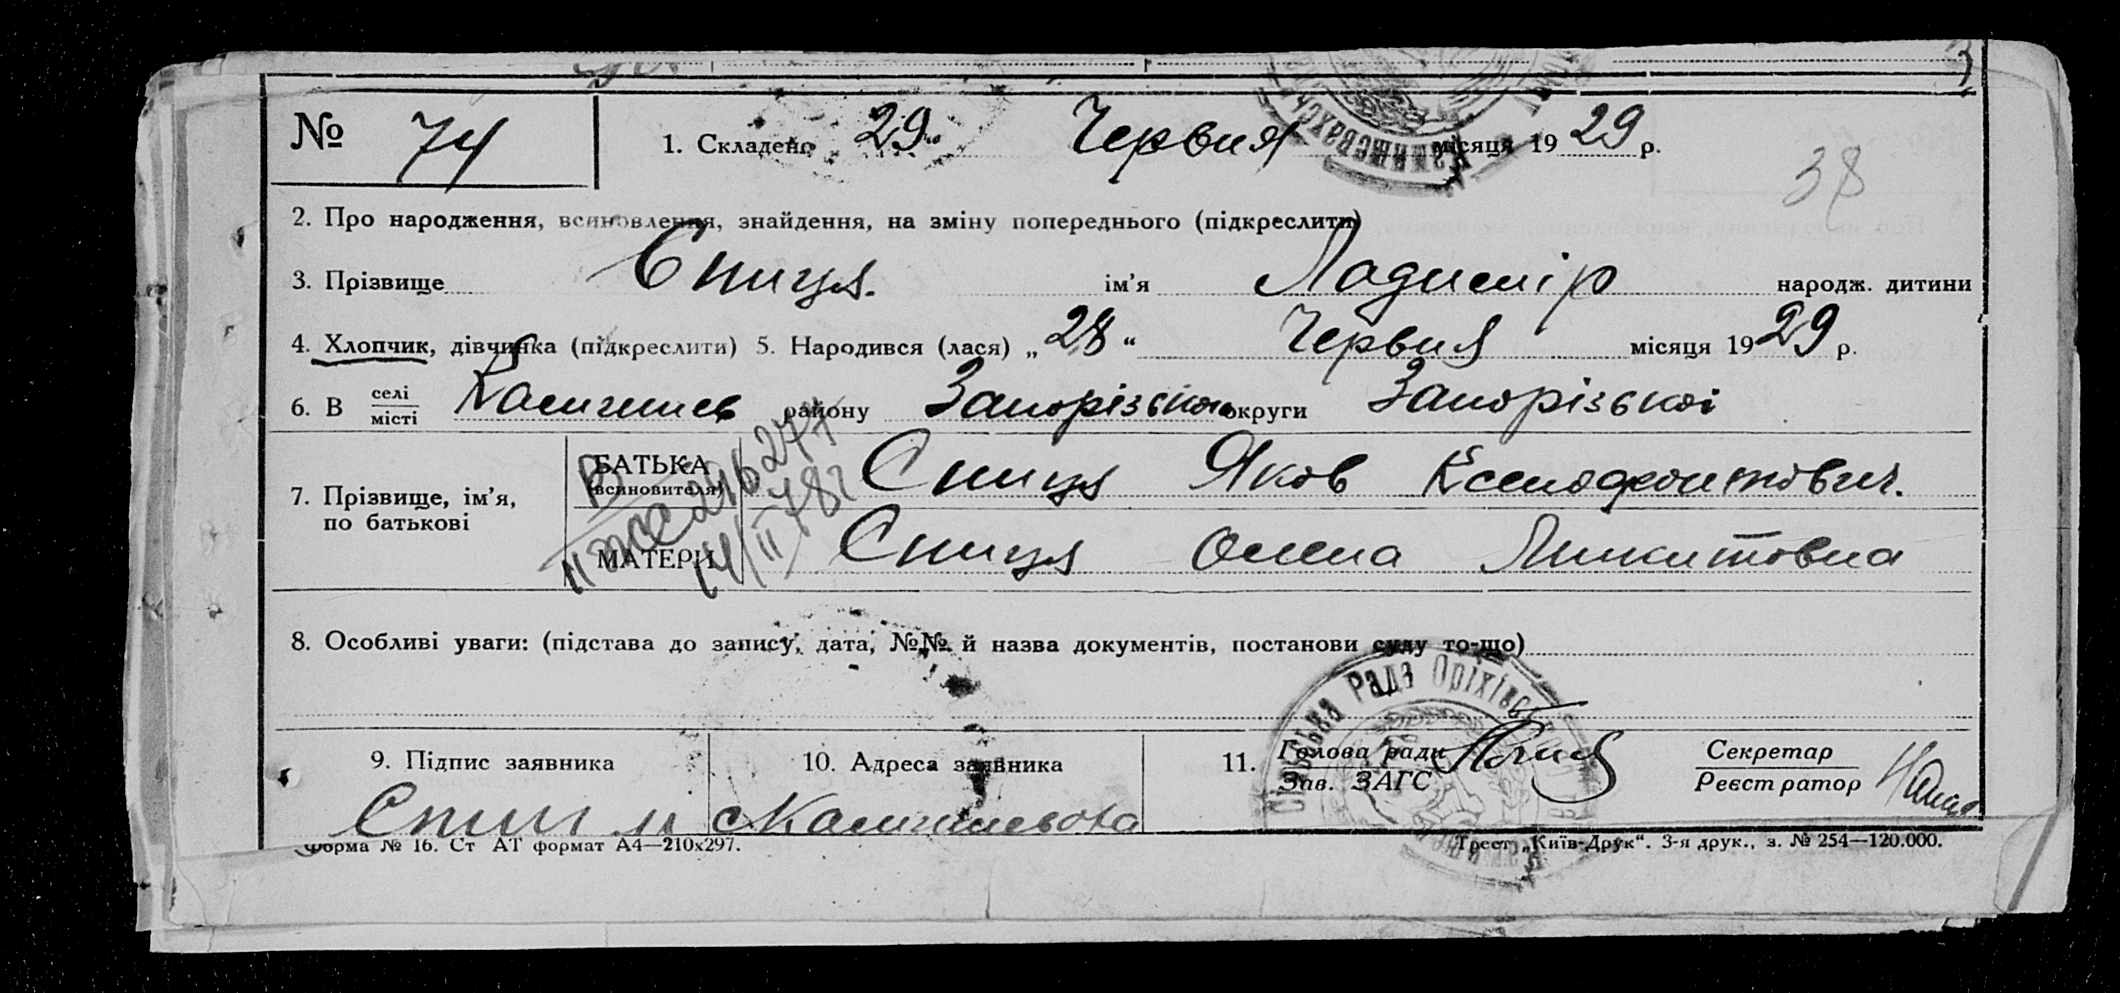 № 74 1. Складено 29 Червня місяця 1929 р.
38
2. Про народження, всиновлення, знайдення, на зміну попереднього (підкреслити)
3. Прізвище Спиця. ім'я Ладимір народж. дитини
4. Хлопчик, дівчинка (підкреслити) 5. Народився (лася) „28“ Червня місяця 1929 р.
6. В селі місті району Запорізького округи Запорізької
7. Прізвище, ім'я, по батькові
БАТЬКА (всиновителя) Спиця Яков Ксенофонтович.
МАТЕРИ Спиця Олена Микитовна
8. Особливі уваги: (підстава до запису, дата, №№ й назва документів, постанови суду то-що)
9. Підпис заявника 10. Адреса заявника 11. Голова ради Зав. ЗАГС Секретар Реєстратор
Сільська Рада Оріхівс
Форма № 16. Ст АТ формат А4—210х297. Трест „Київ-Друк“. 3-я друк., з. № 254—120.000.